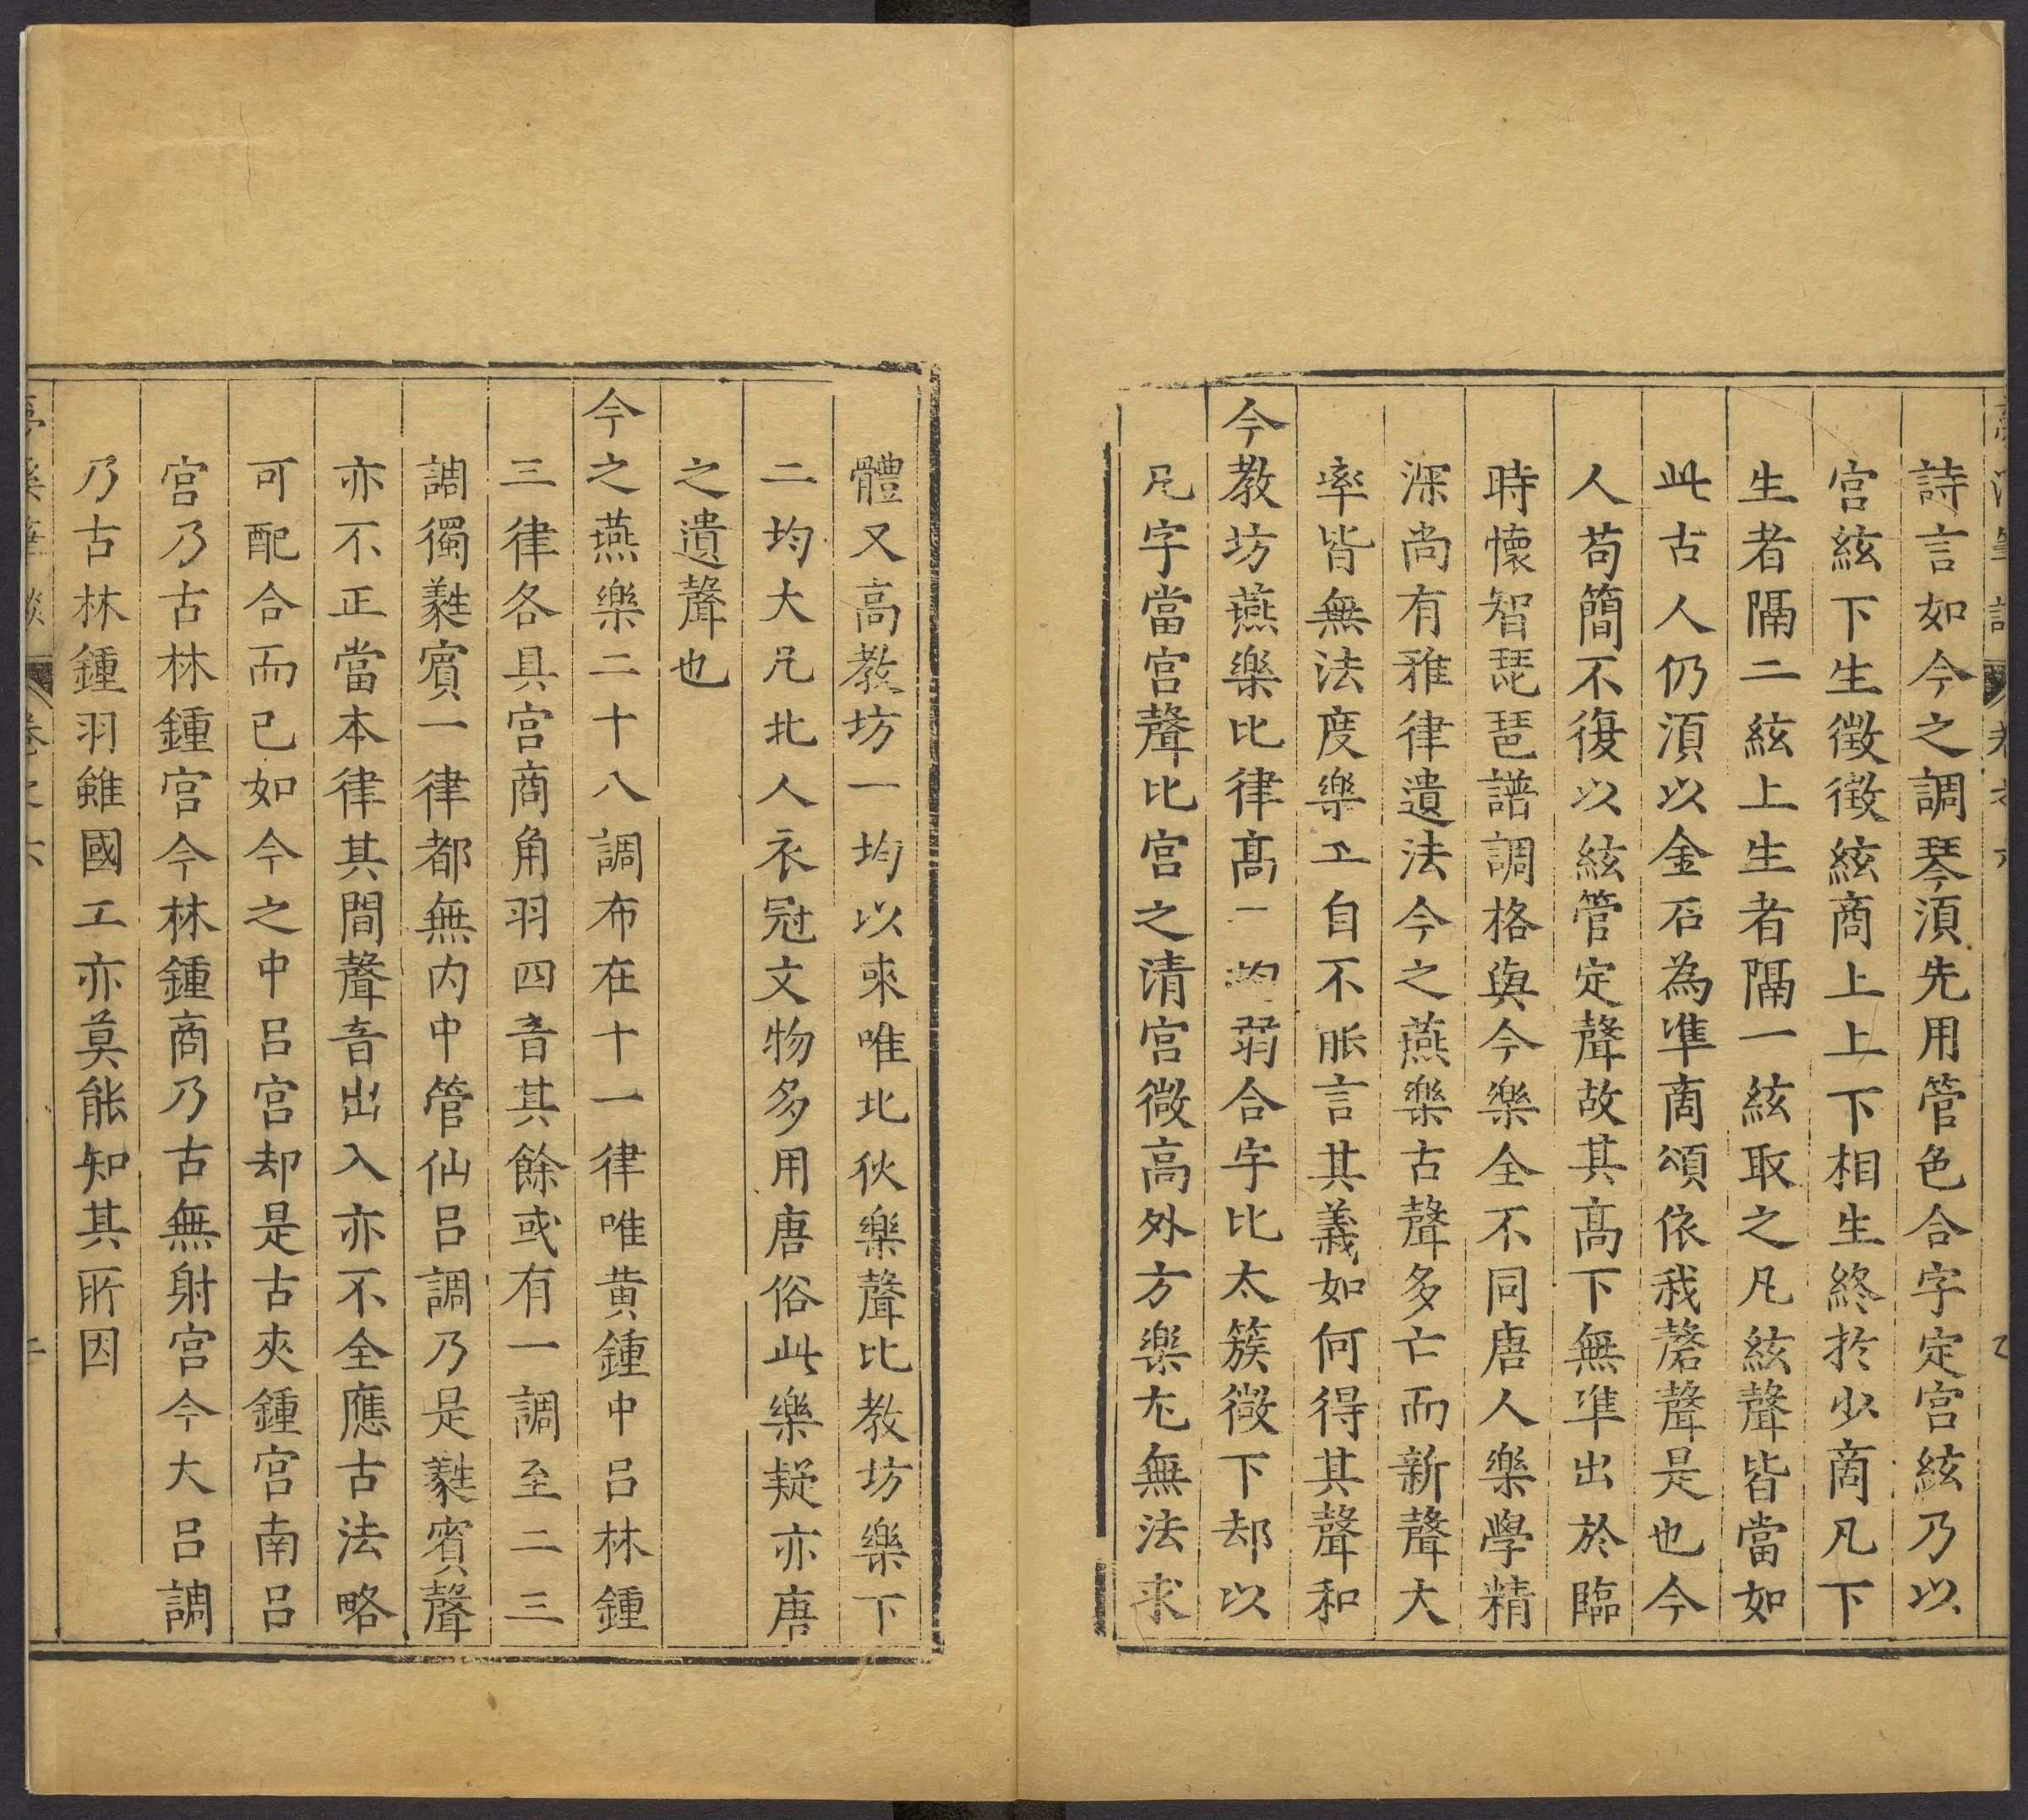 詩言如今之調琴須先用管色合字定宮絃乃以
宮絃下生徵徵絃商上上下相生終於少商凡下
生者隔二絃上生者隔一絃取之凡絃聲皆當如
此古人仍須以金石為準商頌依我磬聲是也今
人苟簡不復以絃管定聲故其髙下無準出於臨
時懷智琵琶譜調格與今樂全不同唐人樂學精
深尚有雅律遺法今之燕樂古聲多亡而新聲大
率皆無法度樂工自不能言其義如何得其聲和
今教坊燕樂比律髙一均弱合字比太簇微下却以
凡字當宮聲比宮之清宮微高外方樂尤無法求
體又高教坊一均以來唯北狄樂聲比教坊樂下
二均大凡北人衣冠文物多用唐俗此樂疑亦唐
之遺聲也
今之燕樂二十八調布在十一律唯黄鍾中呂林鍾
三律各具宮商角羽四音其餘或有一調至二三
調獨蕤賓一律都無内中管仙呂調乃是蕤賓聲
亦不正當本律其間聲音出入亦不全應古法略
可配合而已如今之中呂宮却是古夾鍾宮南呂
宮乃古林鍾宮今林鍾商乃古無射宮今大呂調
乃古林鍾羽雖國工亦莫能知其所因